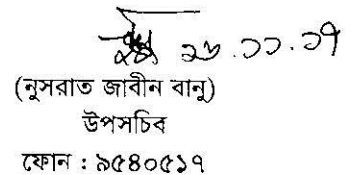 ২৬.১১.১৭
(নুসরাত জাবীন বানু)
উপসচিব
ফোন : ৯৫৪০৫১৭